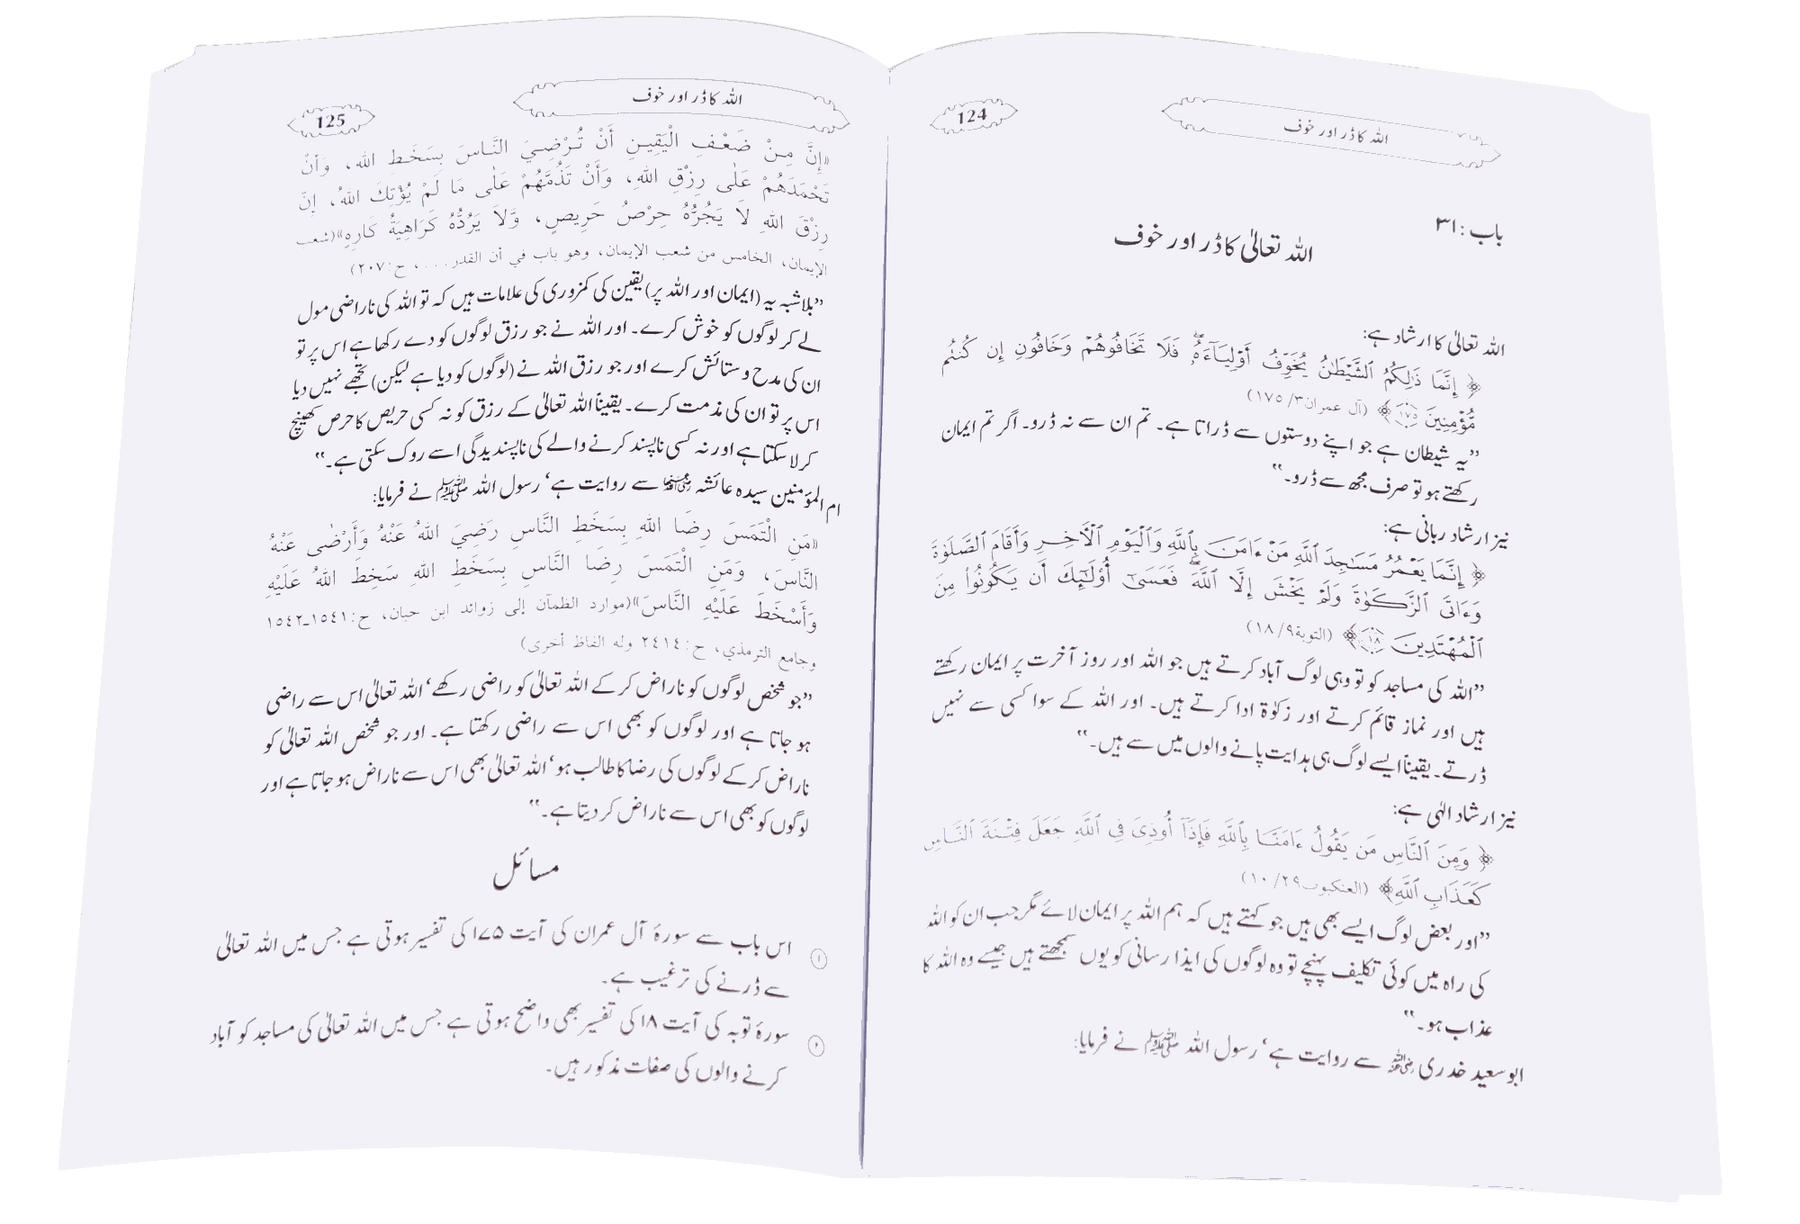 اللہ کا ڈر اور خوف
124
باب : ۳۱
اللہ تعالیٰ کا ڈر اور خوف
اللہ تعالیٰ کا ارشاد ہے:
﴿ إِنَّمَا ذَٰلِكُمُ ٱلشَّيْطَٰنُ يُخَوِّفُ أَوْلِيَآءَهُۥ فَلَا تَخَافُوهُمْ وَخَافُونِ إِن كُنتُم
مُّؤْمِنِينَ ١٧٥﴾ (آل عمران٣/ ١٧٥)
”یہ شیطان ہے جو اپنے دوستوں سے ڈراتا ہے۔ تم ان سے نہ ڈرو۔ اگر تم ایمان
رکھتے ہو تو صرف مجھ سے ڈرو۔“
نیز ارشاد ربانی ہے:
﴿ إِنَّمَا يَعْمُرُ مَسَٰجِدَ ٱللَّهِ مَنْ ءَامَنَ بِٱللَّهِ وَٱلْيَوْمِ ٱلْأَخِرِ وَأَقَامَ ٱلصَّلَوٰةَ
وَءَاتَى ٱلزَّكَوٰةَ وَلَمْ يَخْشَ إِلَّا ٱللَّهَۖ فَعَسَىٰٓ أُوْلَٰٓئِكَ أَن يَكُونُوا۟ مِنَ
ٱلْمُهْتَدِينَ ١٨﴾ (التوبة٩/ ١٨)
”اللہ کی مساجد کو تو وہی لوگ آباد کرتے ہیں جو اللہ اور روز آخرت پر ایمان رکھتے
ہیں اور نماز قائم کرتے اور زکوٰۃ ادا کرتے ہیں۔ اور اللہ کے سوا کسی سے نہیں
ڈرتے۔ یقیناً ایسے لوگ ہی ہدایت پانے والوں میں سے ہیں۔“
نیز ارشاد الٰہی ہے:
﴿ وَمِنَ ٱلنَّاسِ مَن يَقُولُ ءَامَنَّا بِٱللَّهِ فَإِذَآ أُوذِىَ فِى ٱللَّهِ جَعَلَ فِتْنَةَ ٱلنَّاسِ
كَعَذَابِ ٱللَّهِ﴾ (العنكبوت٢٩/ ١٠)
”اور بعض لوگ ایسے بھی ہیں جو کہتے ہیں کہ ہم اللہ پر ایمان لائے مگر جب ان کو اللہ
کی راہ میں کوئی تکلیف پہنچے تو وہ لوگوں کی ایذا رسانی کو یوں سمجھتے ہیں جیسے وہ اللہ کا
عذاب ہو۔“
ابو سعید خدری رضی اللہ عنہ سے روایت ہے‘ رسول اللہ ﷺ نے فرمایا:
اللہ کا ڈر اور خوف
125
«إِنَّ مِنْ ضَعْفِ الْيَقِينِ أَنْ تُرْضِيَ النَّاسَ بِسَخَطِ اللهِ، وَأَنْ
تَحْمَدَهُمْ عَلَى رِزْقِ اللهِ، وَأَنْ تَذُمَّهُمْ عَلَى مَا لَمْ يُؤْتِكَ اللهُ، إِنَّ
رِزْقَ اللهِ لَا يَجُرُّهُ حِرْصُ حَرِيصٍ، وَّلَا يَرُدُّهُ كَرَاهِيَةُ كَارِهٍ»(شعب
الإيمان، الخامس من شعب الإيمان، وهو باب في أن القدر. . . ، ح:٢٠٧)
”بلاشبہ یہ (ایمان اور اللہ پر) یقین کی کمزوری کی علامات ہیں کہ تو اللہ کی ناراضی مول
لے کر لوگوں کو خوش کرے۔ اور اللہ نے جو رزق لوگوں کو دے رکھا ہے اس پر تو
ان کی مدح و ستائش کرے اور جو رزق اللہ نے (لوگوں کو دیا ہے لیکن) تجھے نہیں دیا
اس پر تو ان کی مذمت کرے۔ یقیناً اللہ تعالیٰ کے رزق کو نہ کسی حریص کا حرص کھینچ
کر لا سکتا ہے اور نہ کسی ناپسند کرنے والے کی ناپسندیدگی اسے روک سکتی ہے۔“
ام المؤمنین سیدہ عائشہ رضی اللہ عنہا سے روایت ہے‘ رسول اللہ ﷺ نے فرمایا:
«مَنِ الْتَمَسَ رِضَا اللهِ بِسَخَطِ النَّاسِ رَضِيَ اللهُ عَنْهُ وَأَرْضَى عَنْهُ
النَّاسَ، وَمَنِ الْتَمَسَ رِضَا النَّاسِ بِسَخَطِ اللهِ سَخِطَ اللهُ عَلَيْهِ
وَأَسْخَطَ عَلَيْهِ النَّاسَ»(موارد الظمآن إلى زوائد ابن حبان، ح:١٥٤١-١٥٤٢
وجامع الترمذي، ح:٢٤١٤ وله ألفاظ أخرى)
”جو شخص لوگوں کو ناراض کر کے اللہ تعالیٰ کو راضی رکھے‘ اللہ تعالیٰ اس سے راضی
ہو جاتا ہے اور لوگوں کو بھی اس سے راضی رکھتا ہے۔ اور جو شخص اللہ تعالیٰ کو
ناراض کر کے لوگوں کی رضا کا طالب ہو‘ اللہ تعالیٰ بھی اس سے ناراض ہو جاتا ہے اور
لوگوں کو بھی اس سے ناراض کر دیتا ہے۔“
مسائل
۱ اس باب سے سورۂ آل عمران کی آیت ۱۷۵ کی تفسیر ہوتی ہے جس میں اللہ تعالیٰ
سے ڈرنے کی ترغیب ہے۔
۲ سورۂ توبہ کی آیت ۱۸ کی تفسیر بھی واضح ہوتی ہے جس میں اللہ تعالیٰ کی مساجد کو آباد
کرنے والوں کی صفات مذکور ہیں۔